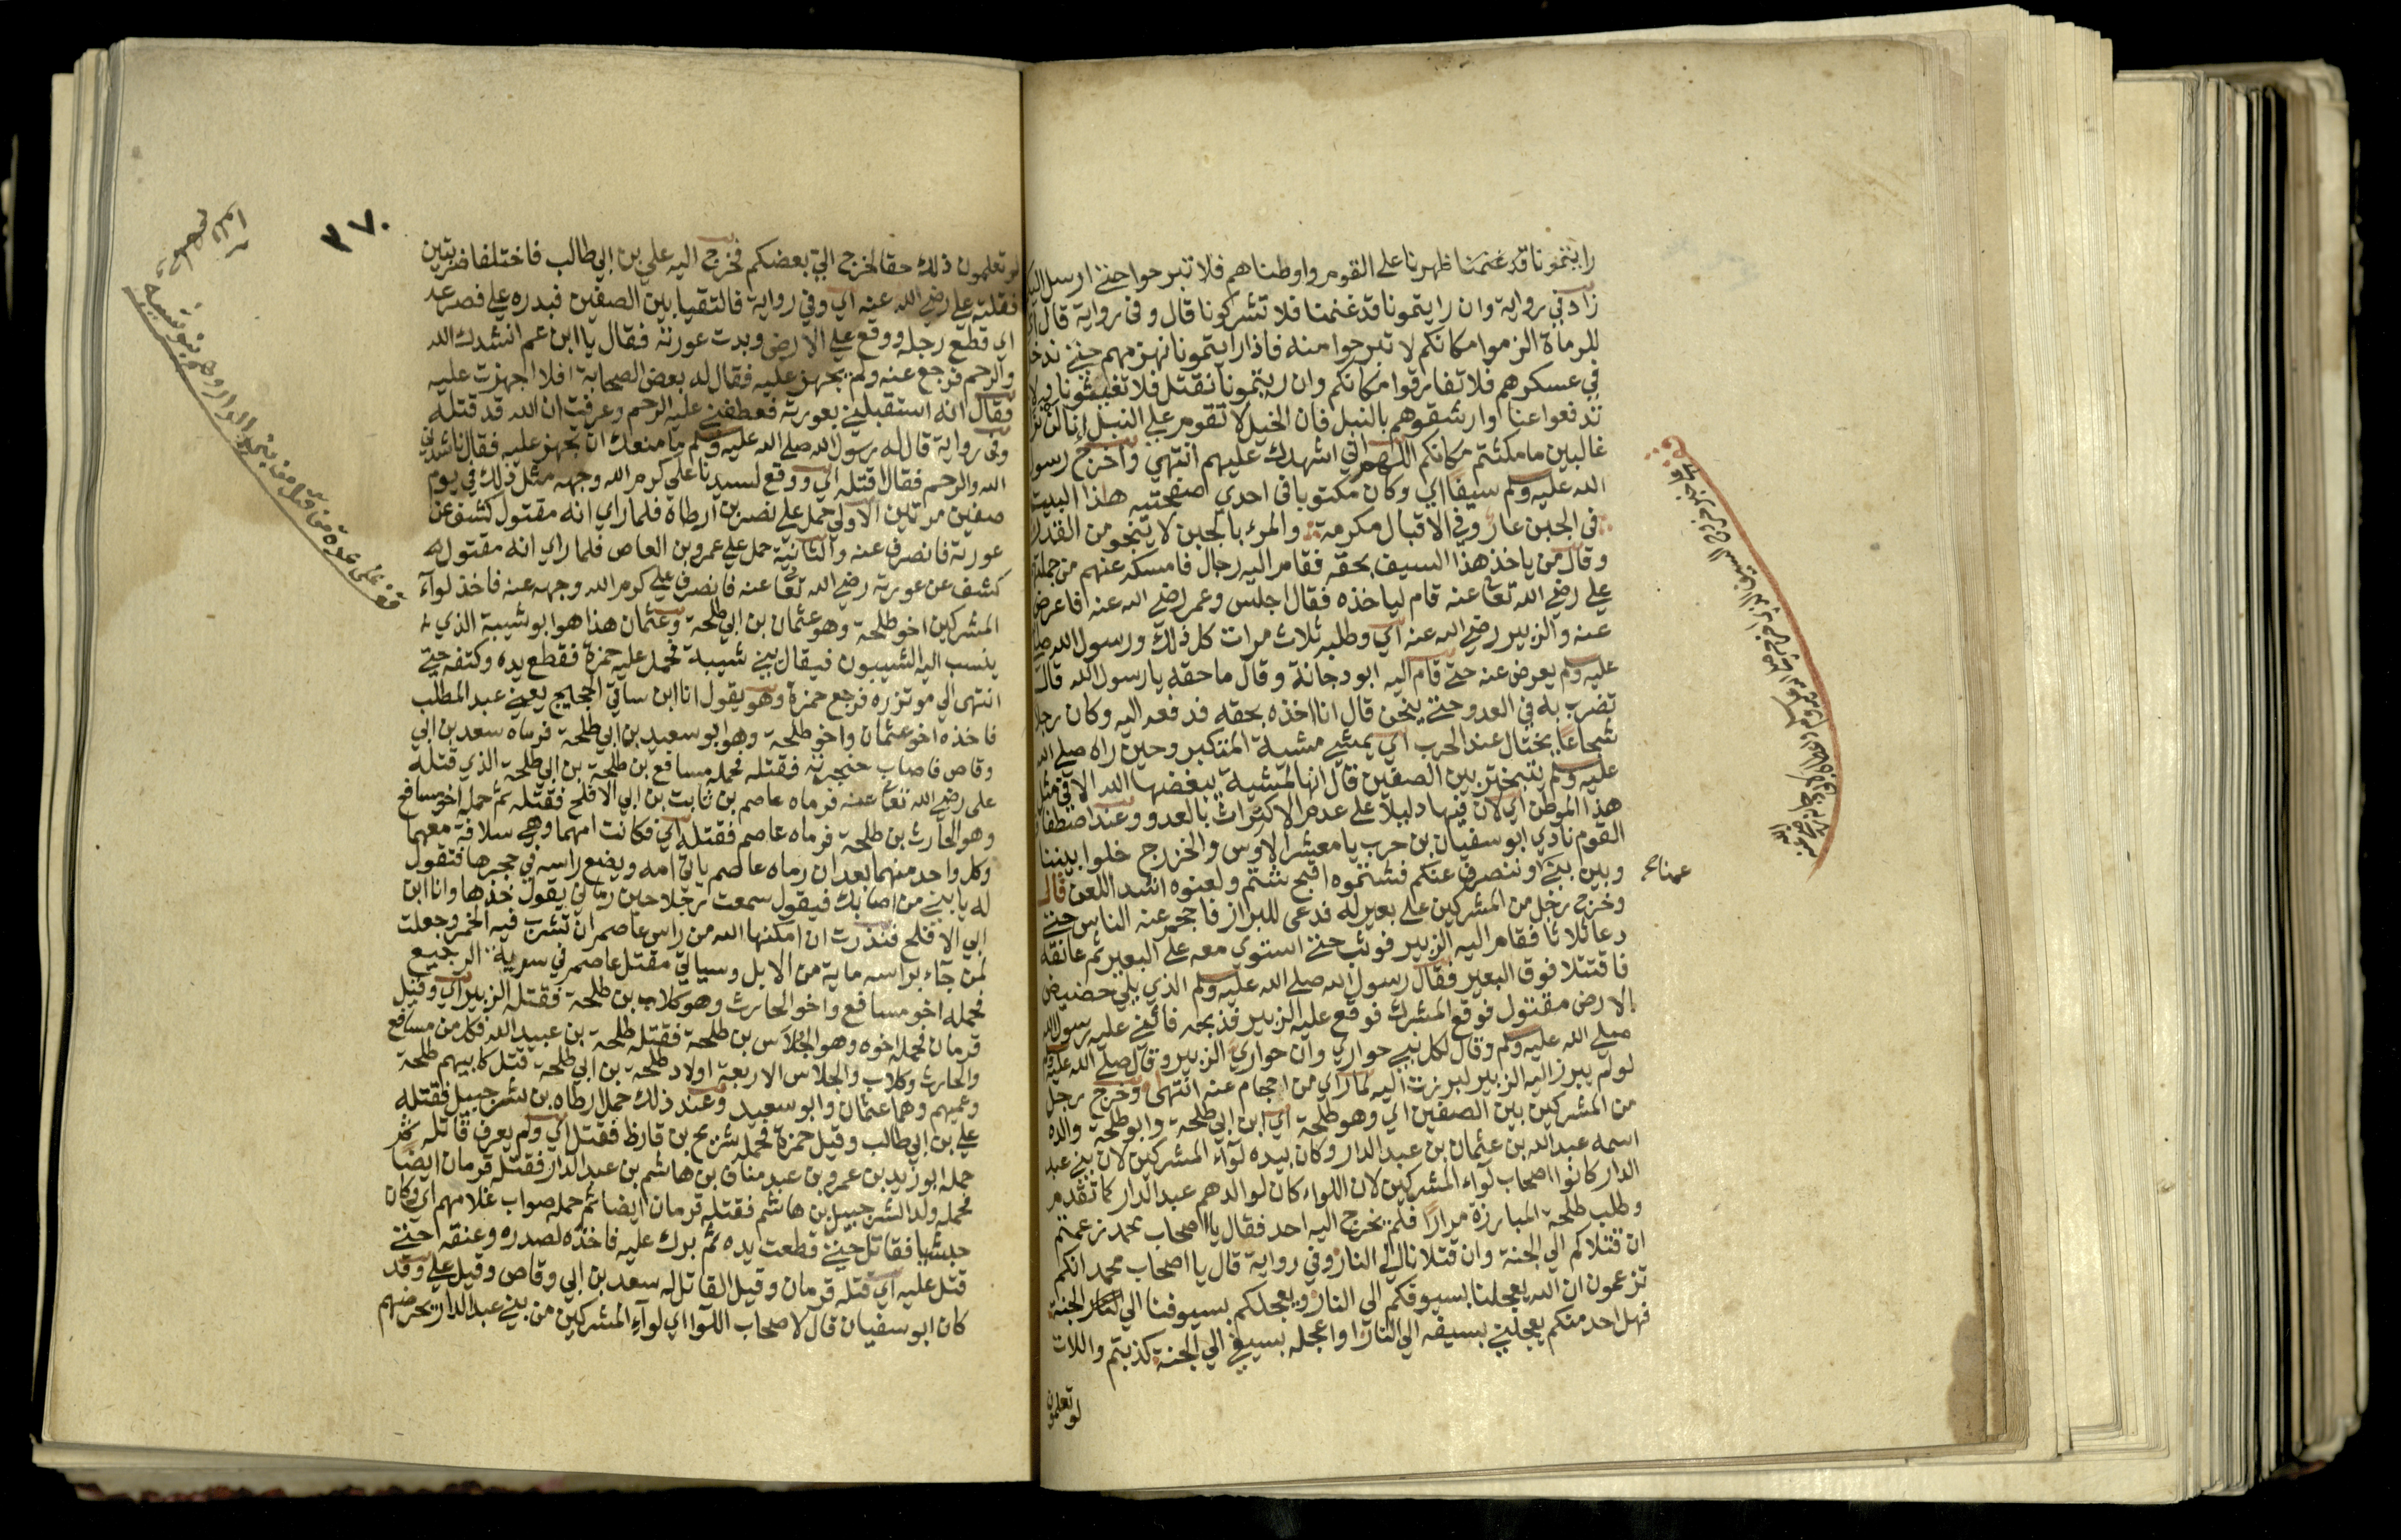 رايتمونا قد غنمنا ظهرنا على القوم واوطناهم فلا تبرحوا حتى ارسل اليكم
زاد في رواية وان رايتمونا قد غنمنا فلا تشركونا قال وفي رواية قال اي
للرماة الزموا مكانكم لا تبرحوا منه فاذا رايتمونا نهزمهم حتى ندخل
في عسكرهم فلا تفارقوا مكانكم وان رايتمونا نقتل فلا تغيثونا ولا
تدفعوا عنا وارشقوهم بالنبل فان الخيل لا تقوم على النبل انا لن نزال
غالبين ما مكثتم مكانكم اللهم اني اشهدك عليهم انتهى واخرج رسول
الله عليه وسلم سيفا اي وكان مكتوبا في احدي صفحتيه هذا البيت
في الجبن عار وفي الاقبال مكرمة والمرء بالجبن لا ينجو من القدر
وقال من ياخذ هذا السيف بحقه فقام اليه رجال فامسكه عنهم من جملتهم
علي رضي الله تعا عنه قام لياخذه فقال اجلس وعمر رضي الله عنه فاعرض
عنه والزبير رضي الله عنه اي وطلبه ثلاث مرات كل ذلك ورسول الله صلى
عليه وسلم يعرض عنه حتى قام اليه ابو دجانة وقال ما حقه يا رسول الله قال
تضرب به في العدو حتى ينحن قال انا اخذه بحقه فدفعه اليه وكان رجلا
شجاعا يختال عند الحرب اي يمشي مشية المتكبر وحين راه صلى الله
عليه وسلم يتبختر بين الصفين قال انها لمشية يبغضها الله الا في مثل
هذا الموطن اي لان فيها دليلا على عدم الاكتراث بالعدو وعند اصطفاف
القوم نادي ابو سفيان بن حرب يا معشر الاوس والخزرج خلوا بيننا
وبين بني وننصرف عنكم فشتموه اقبح شتم ولعنوه اشد اللعن قال
عمنا صح
وخرج رجل من المشركين على بعير له فدعى للبراز فاحجم عنه الناس حتى
دعا ثلاثا فقام اليه الزبير فوثب حتى استوي معه على البعير ثم عانقه
فاقتتلا فوق البعير فقال رسول الله صلى الله عليه وسلم الذي يلي حضيض
الارض مقتول فوقع المشرك فوقع عليه الزبير فذبحه فاثنى عليه رسول الله
صلى الله عليه وسلم وقال لكل نبي حواري وان حواري الزبير وقال صلى الله عليه وسلم
لو لم يبرز اليه الزبير لبرزت اليه لما راي من احجام عنه انتهى وخرج رجل
من المشركين بين الصفين اي وهو طلحة اي ابن ابي طلحة وابو طلحة والده
اسمه عبد الله بن عثمان بن عبد الدار وكان بيده لوآء المشركين لان بني عبد
الدار كانوا اصحاب لوآء المشركين لان اللوآء كان لوالدهم عبد الدار كما تقدم
وطلب طلحة المبارزة مرارا فلم يخرج اليه احد فقال يا اصحاب محمد زعمتم
ان قتلاكم الي الجنة وان قتلانا الي النار وفي رواية قال يا اصحاب محمد انكم
تزعمون ان الله يعجلنا بسيوفكم الي النار ويعجلكم بسيوفنا الي الجنة
فهل احد منكم يعجلني بسيفه الي النار او اعجله بسيفي الي الجنة كذبتم واللات
لو تعلمون
٣٧٠
لو تعلمون ذلك حقا لخرج الي بعضكم فخرج اليه علي بن ابي طالب فاختلفا ضربتين
فقتله علي رضي الله عنه اي وفي رواية فالتقيا بين الصفين فبدره علي فصرعه
اي قطع رجله ووقع على الارض وبدت عورته فقال يا ابن عم انشدك الله
والرحم فرجع عنه ولم يجهز عليه فقال له بعض الصحابة افلا اجهزت عليه
فقال انه استقبلني بعورته فعطفني عليه الرحم وعرفت ان الله قد قتله
وفي رواية قال له رسول الله صلى الله عليه وسلم ما منعك ان تجهز عليه فقال ناشدني
الله والرحم فقال اقتله اي ووقع لسيدنا علي كرم الله وجهه مثل ذلك في يوم
صفين مرتين الاولي حمل على نصر بن ارطاة فلما راي انه مقتول كشف عن
عورته فانصرف عنه والثانية حمل على عمرو بن العاص فلما راي انه مقتول
كشف عن عورته رضي الله تعا عنه فانصرف علي كرم الله وجهه عنه فاخذ لوآء
المشركين اخو طلحة وهو عثمان بن ابي طلحة وعثمان هذا هو ابو شيبة الذي
ينسب اليه الشيبيون فيقال بني شيبة فحمل عليه حمزة فقطع يده وكتفه حتى
انتهى الي موتزره فرجع حمزة وهو يقول انا ابن ساقي الحجيج يعني عبد المطلب
فاخذه اخو عثمان واخو طلحة وهو ابو سعيد بن ابي طلحة فرماه سعد بن ابي
وقاص فاصاب حنجرته فقتله فحمله مسافع بن طلحة بن ابي طلحة الذي قتله
على رضي الله تعا عنه فرماه عاصم بن ثابت بن ابي الافلح فقتله ثم حمله اخو مسافع
وهو الحارث بن طلحة فرماه عاصم فقتله اي فكانت امهما وهي سلافة معهما
وكل واحد منهما بعد ان رماه عاصم ياتي امه ويضع راسه في حجرها فتقول
له يا بني من اصابك فيقول سمعت رجلا حين رماني يقول خذها وانا ابن
ابي الافلح فنذرت ان امكنها الله من راس عاصم ان تشرب فيه الخمر وجعلت
لمن جآء براسه ماية من الابل وسياتي مقتل عاصم في سرية الرجيع
فحمله اخو مسافع واخو الحارث وهو كلاب بن طلحة فقتله الزبير اي وقيل
قزمان فحمله اخوه وهو الجلاس بن طلحة فقتله طلحة بن عبيد الله فكل من مسافع
والحارث وكلاب والجلاس الاربعة اولاد طلحة بن ابي طلحة قتل كابيهم طلحة
وعميهم وهما عثمان وابو سعيد وعند ذلك حمله ارطاه بن شرحبيل فقتله
علي بن ابي طالب وقيل حمزة فحمله شريح بن قارظ فقتل اي ولم يعرف قاتله ثم
حمله ابو زيد بن عمرو بن عبد مناف بن هاشم بن عبد الدار فقتله قزمان ايضا
فحمله ولد الشرحبيل بن هاشم فقتله قزمان ايضا ثم حمله صواب غلامهم اي وكان
حبشيا فقاتل حتى قطعت يده ثم برك عليه فاخذه لصدره وعنقه حتى
قتل عليه اي قتله قزمان وقيل القاتل له سعد بن ابي وقاص وقيل علي وقد
كان ابو سفيان قال لاصحاب اللوآ اي لوآء المشركين من بني عبد الدار يحرضهم